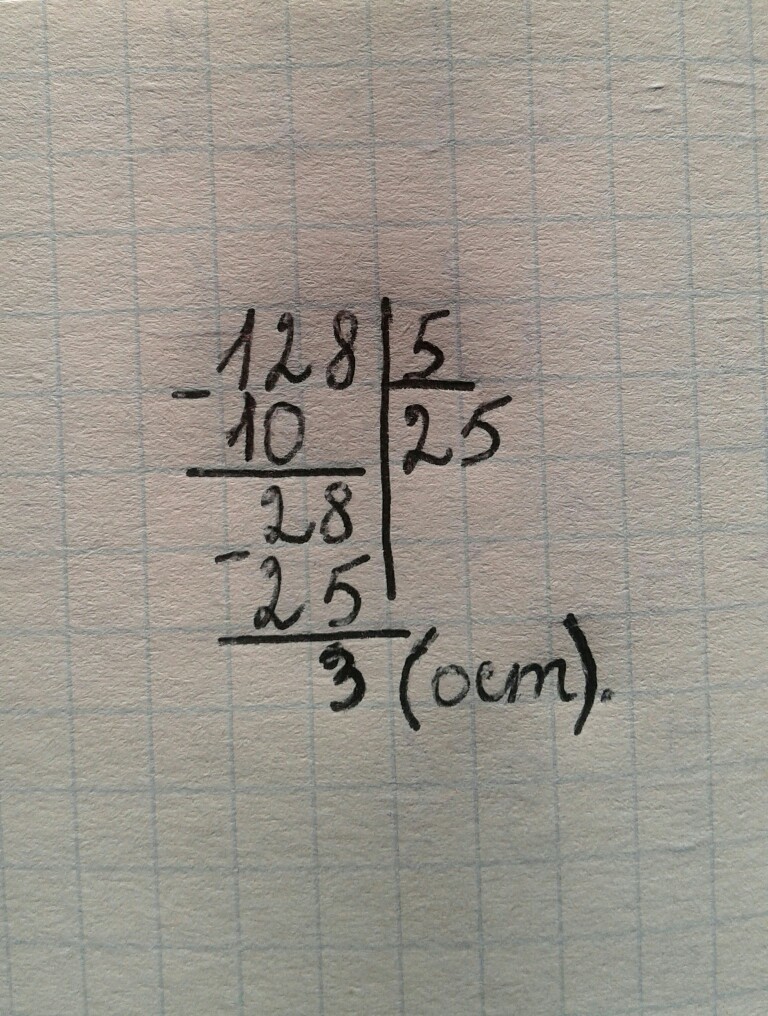 128 | 5
- 10 | 25
28
- 25
3 (ост).